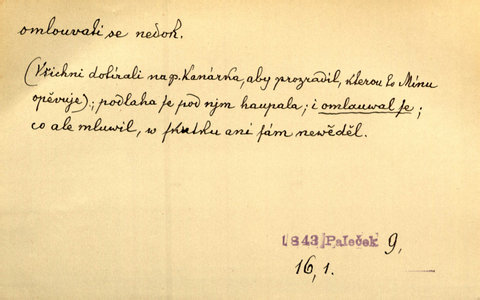 omlouvati se nedok.
(Všichni dotírali na p. Kanárka, aby prozradil, kterou to Mínu
opěvuje); podlaha se pod njm haupala; i omlauwal se;
co ale mluwil, w skutku ani sám newěděl.
1843 Paleček 9,
16, 1.